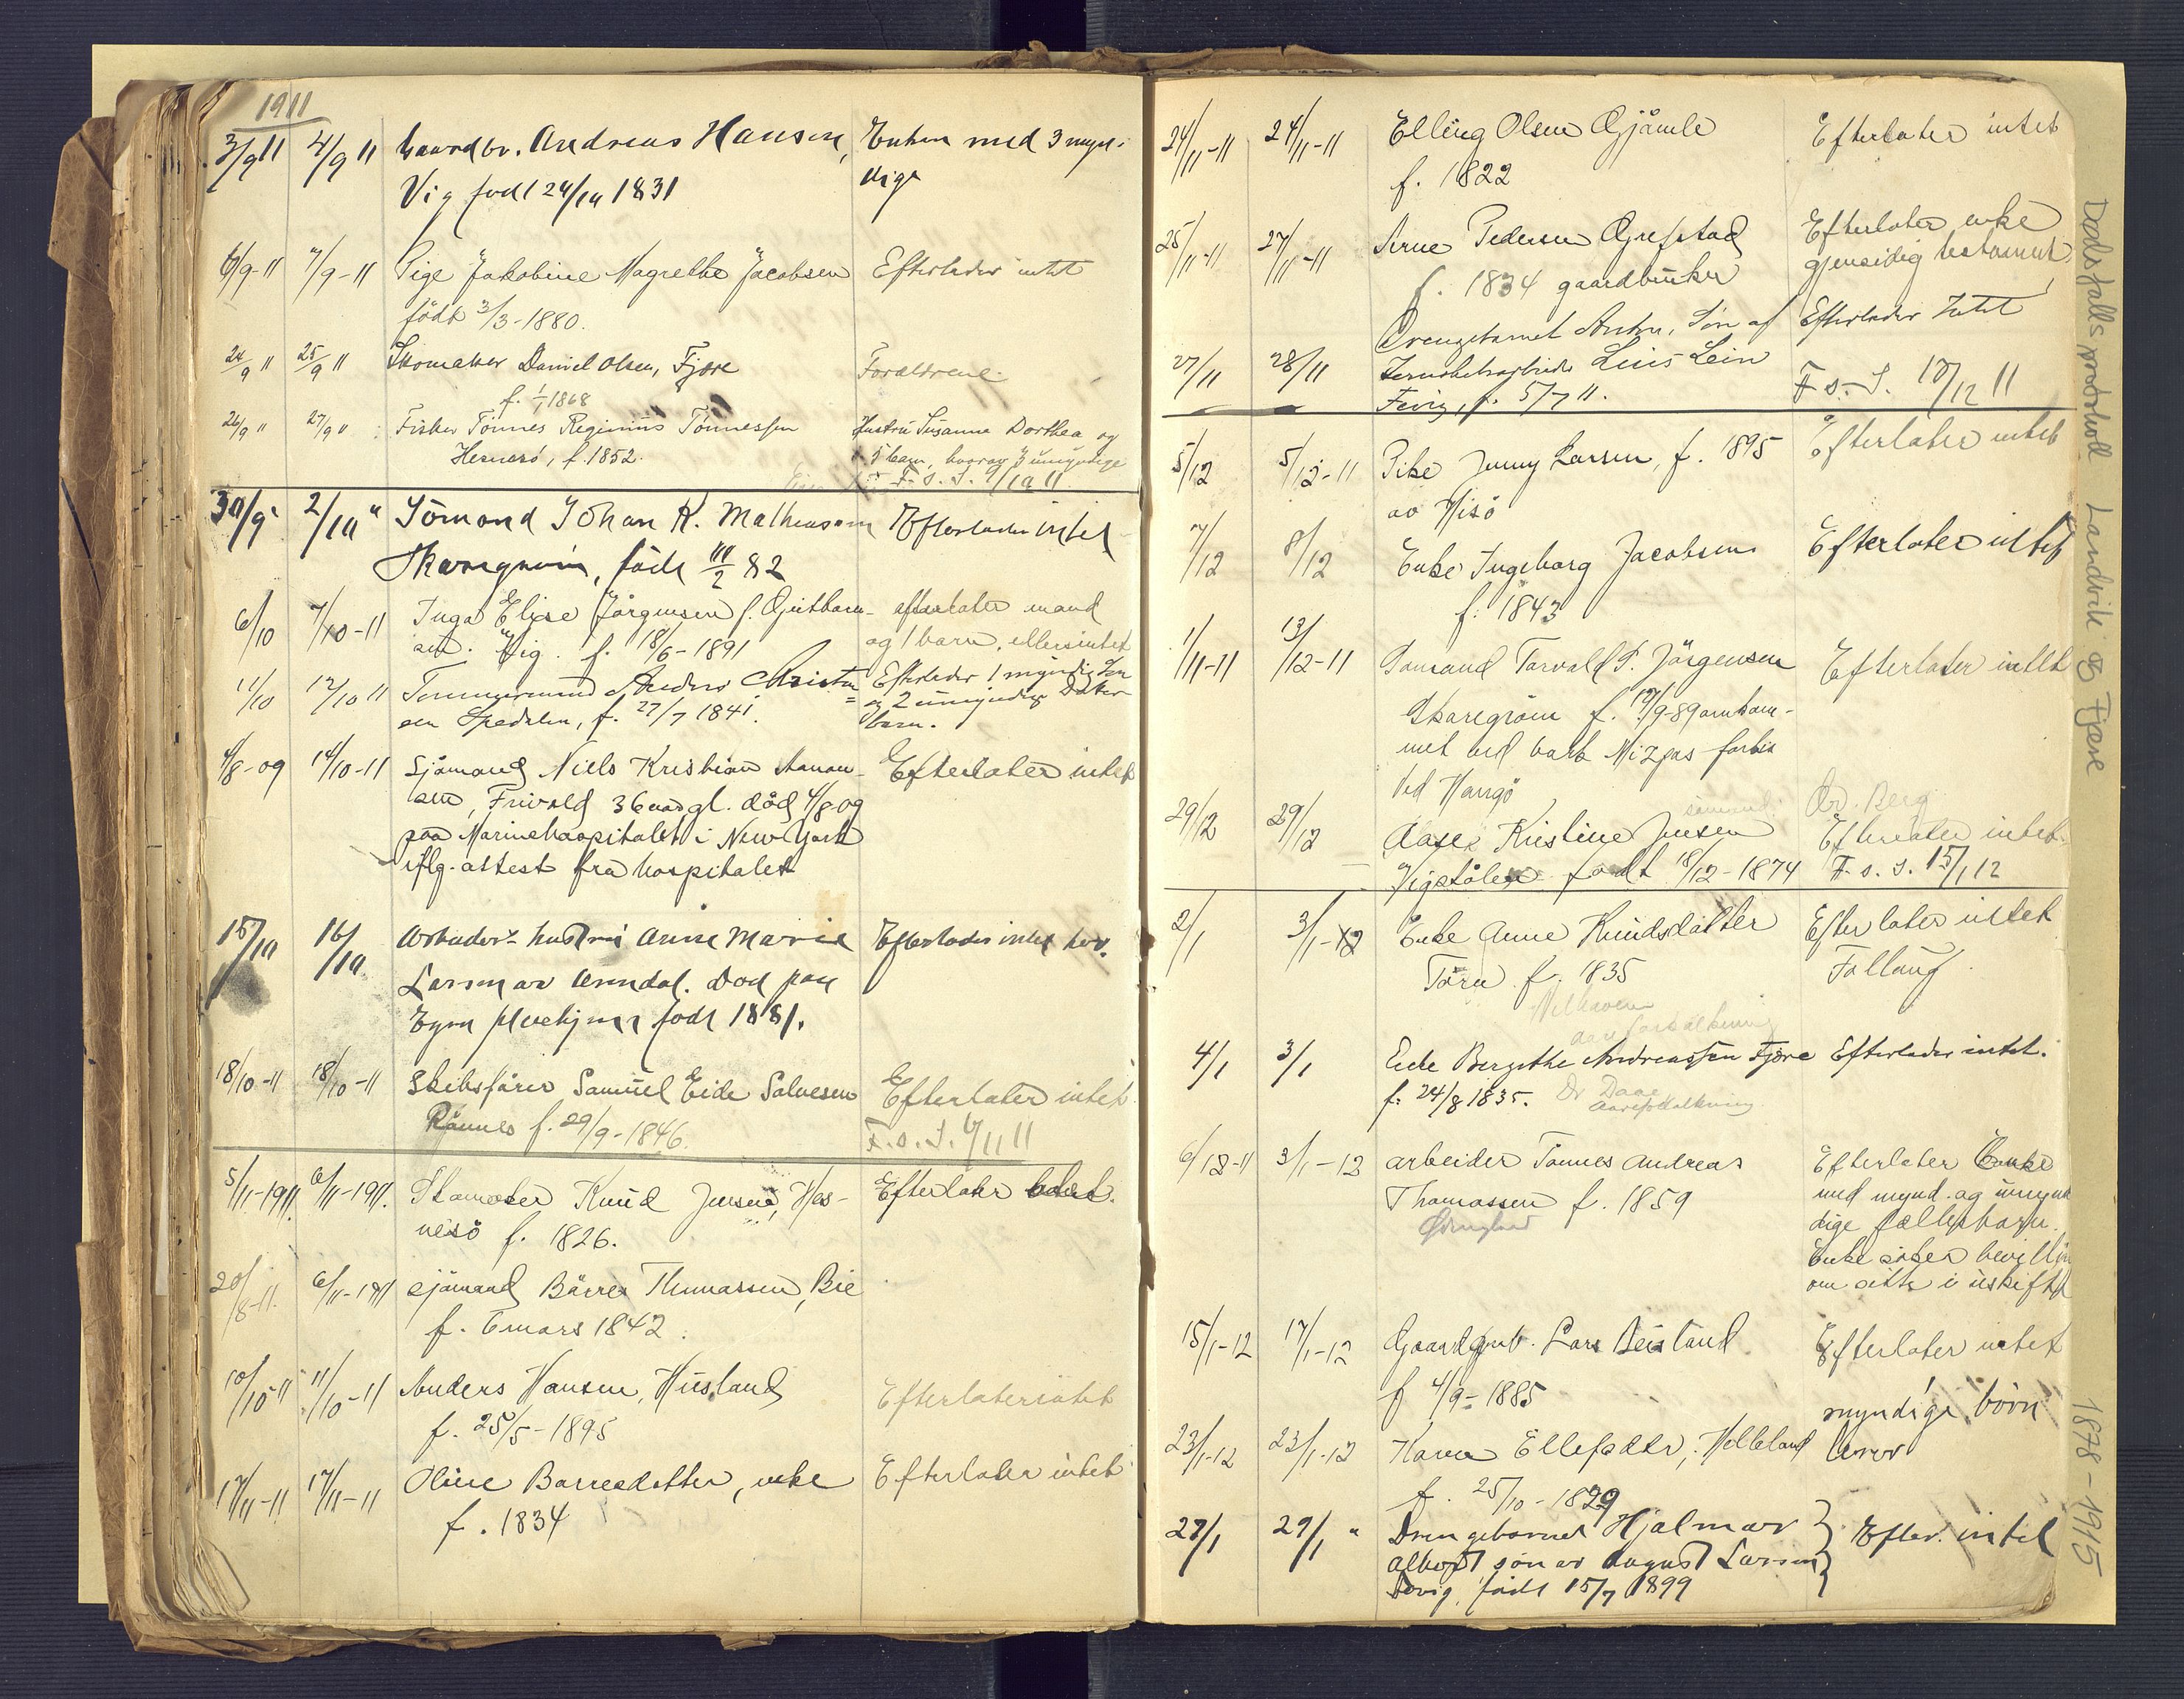 1911
3/9 11 4/9 11 Gaardbr. Andreas Hansen, Enken med 3 myn-
Vig født 24/10 1831 dige
6/9-11 7/9-11 Pige Jakobine Magrethe Jacobsen Efterlader intet
født 3/3-1880.
24/9 11 25/9 11 Skomaker Daniel Olsen, Fjære Forældrene
f. 1/1 1868
26/9 11 27/9 11 Fisker Tønnes Reginius Tønnessen Hustru Susanne Dorthea og
Hesnesø, f. 1852. 5 barn, hvorav 3 umyndige
F. s. S. 9/10 11.
30/9 2/10 " Sømand Johan K. Mathiassen Efterlader intet
Skaregrøm, født 10/2 82
6/10 7/10-11 Inga Elise Jørgensen f. Guttorm- efterlater mand
sen. Vig. f. 18/6-1891 og 1 barn, ellers intet
11/10 12/10 11 Tømmermand Anders Christen= Efterlader 1 myndig Søn
sen Spedalen, f. 27/7 1841. og 2 umyndige Datter
barn.
4/8-09 14/10-11 Sjømand Niels Kristian Aanon- Efterlater intet
sen, Frivold 36 aar gl. død 4/8-09
paa Marinehospitalet i New York
iflg. attest fra hospitalet
15/10 16/10 Arbeider hustru Anne Marie Efterlader intet her.
Larsen av Arendal. Død paa
Eyra pleiehjem født 1881.
18/10-11 18/10-11 Skibsfører Samuel Eide Salvesen Efterlater intet.
Rønnes f. 29/9-1846. F. s. S. 6/11 11
5/11-1911. 6/11-1911. Skomaker Knud Jensen, Hes- Efterlater
nesø f. 1826.
20/8-11. 6/11-1911 Sjømand Børre Thomassen, Bie
f. 6 mars 1842.
10/10-11 11/10-11 Anders Hansen, Husland Efterlater intet
f. 25/5-1895
17/11-11 17/11-11 Oline Barresdatter, enke Efterlater intet
f. 1834
24/11-11 24/11-11 Elling Olsen Gjømle Efterlater intet
f. 1822
25/11-11 27/11-11 Arne Pedersen Grefstad Efterlater enke
f. 1834 gaardbruker gjensidig testament
Drengebarnet Anton, Søn af Efterlader Intet
27/11 28/11 Jernbetoarbeider Leis Lein
Fevig, f. 5/7 11. F. s. S. 10/12 11
5/12 5/12-11 Pike Jenny Larsen, f. 1895 Efterlater intet
av Hisø
7/12 8/12 Enke Ingeborg Jacobsen Efterlater intet
f. 1843
1/11-11 13/12-11 Sømand Torvald S. Jørgensen Efterlater intet
Skaregrøm f. 19/9-89 omkom-
met ved bark Mizpas forlis
ved Hangø
29/12 29/12 Aase Kristine Jensen Dr. Berg
Efterlater intet.
Vigstølen født 18/12-1874 F. s. S. 15/1 12
2/1 3/1-12 Enke Anne Knudsdatter Efterlater intet
Tøra f. 1835 Fattig
4/1 3/1 Enke Bergithe Andreassen Fjære Efterlader intet.
f. 24/8 1835. Dr Daae
Aareforkalkning
6/12-11 3/1-12 arbeider Tønnes Andreas Efterlater Enke
Thomassen f. 1859 med mynd. og umyn
dige fællesbarn.
Enke søker bevilling
om sitte i uskifte
15/1-12 17/1-12 Gaardgut. Lars Beisland. Efterlater intet
f 4/9-1885
myndige børn
23/1-12 23/1-12 Karen Ellefsdtr, Helleland
f. 25/10-1829
27/1 29/1 " Drengebarnet Hjalmar Efterl. intet
Albert søn av August Larsen
Fevig, født 15/7 1899
Dødsfallsprotokoll Landvik og Fjære 1878-1915